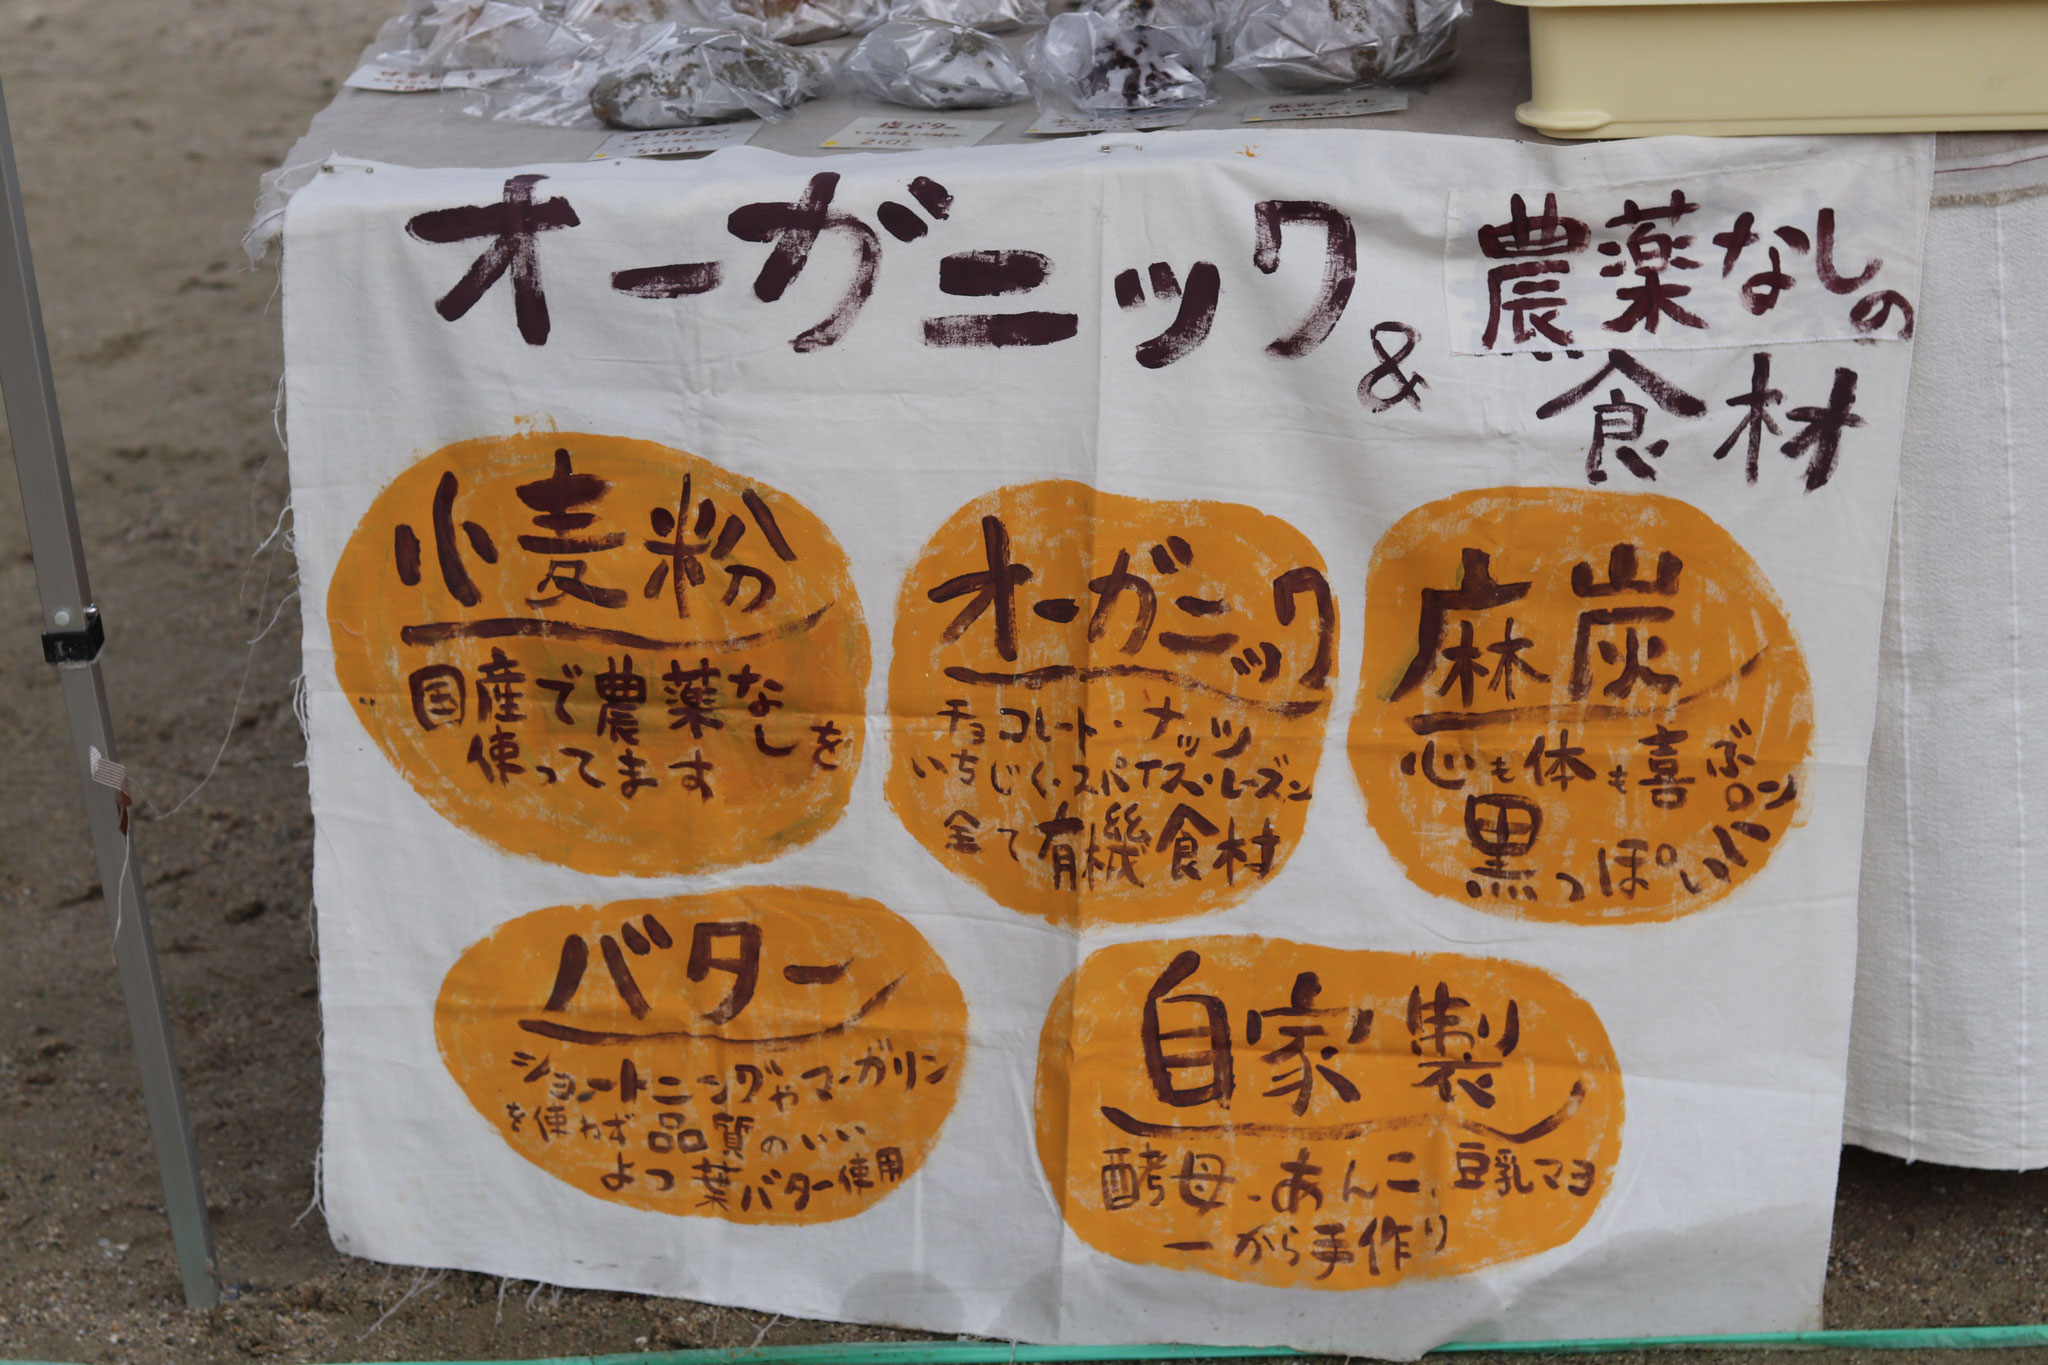 塩バター
210
540
オーガニック & 農薬なしの
食材
小麦粉
国産で農薬なしを
使ってます
オーガニック
チョコレート・ナッツ
いちじく・スパイス・レーズン
全て有機食材
麻炭
心も体も喜ぶ
黒っぽいパン
バター
ショートニングやマーガリン
を使わず品質のいい
よつ葉バター使用
自家製
酵母・あんこ、豆乳マヨ
一から手作り